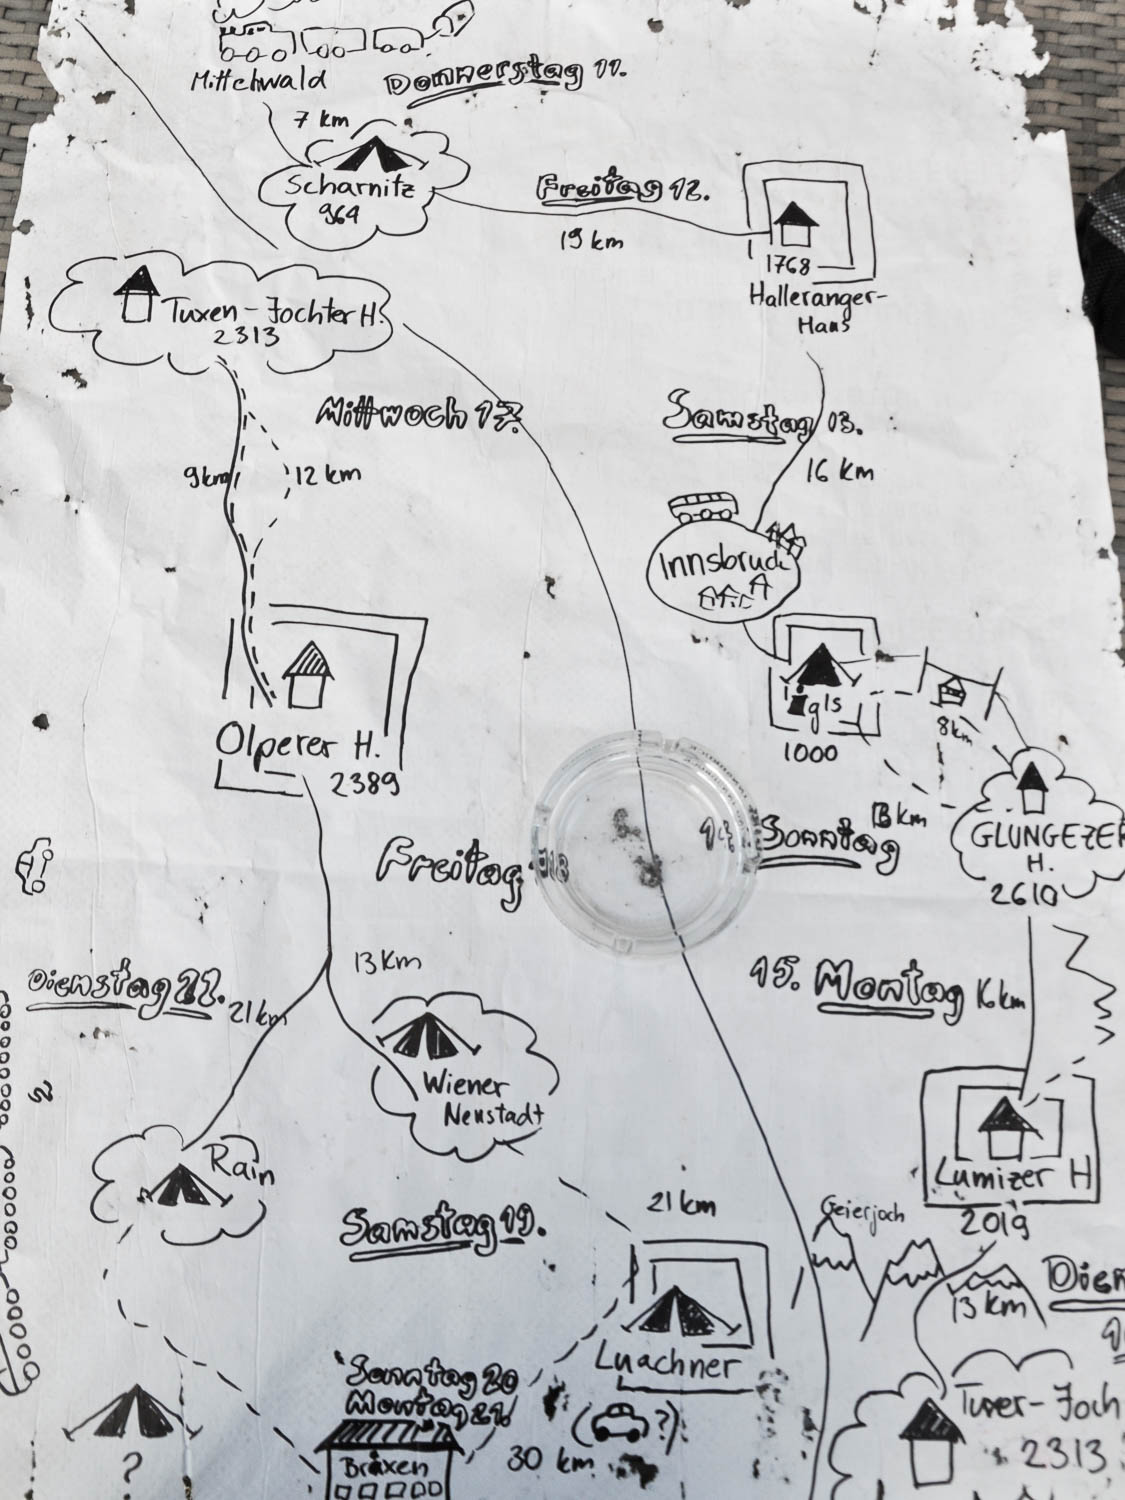 Mittelwald
Donnerstag 11.
7 km
Scharnitz
964
Freitag 12.
19 km
1768
Halleranger-
Haus
Tuxen-Jochter H.
2313
Mittwoch 17.
9km
12 km
Samstag 13.
16 km
Innsbruck
igls
1000
8km
Olperer H.
2389
Freitag 18
14. Sonntag
13 km
GLUNGEZER
H.
2610
13 km
Dienstag 22.
21 km
15. Montag 16 km
Wiener
Neustadt
Rain
Lumizer H
2019
Samstag 19.
21 km
Geierjoch
13 km
Dien
Luachner
Sonntag 20
Montag 21
(?)
30 km
Braxen
?
Tuxer-Joch
2313